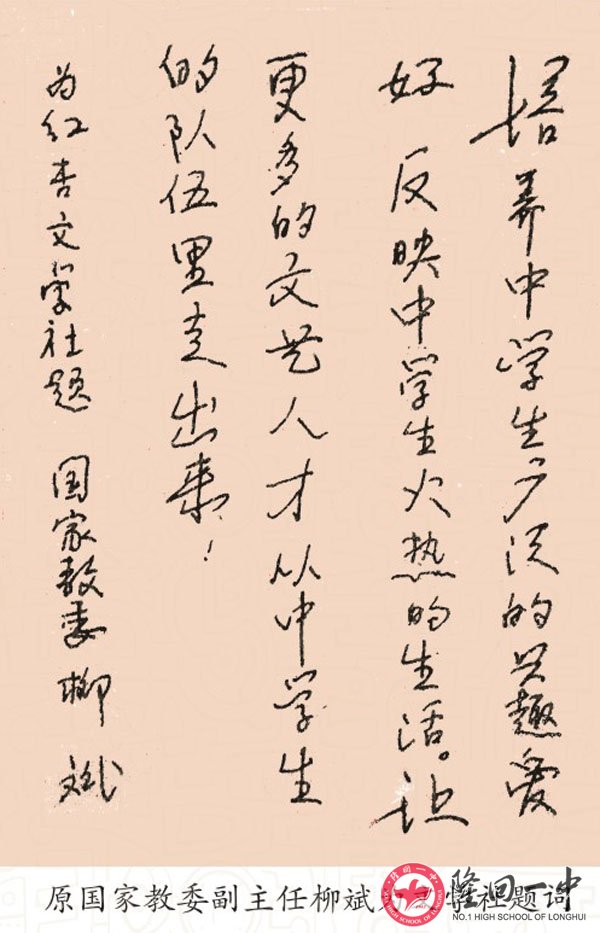 培养中学生广泛的兴趣爱
好 反映中学生火热的生活。让
更多的文艺人才从中学生
的队伍里走出来！
为红杏文学社题 国家教委 柳斌
原国家教委副主任柳斌 社题词
隆回一中
隆回一中
NO.1 HIGH SCHOOL OF LONGHUI